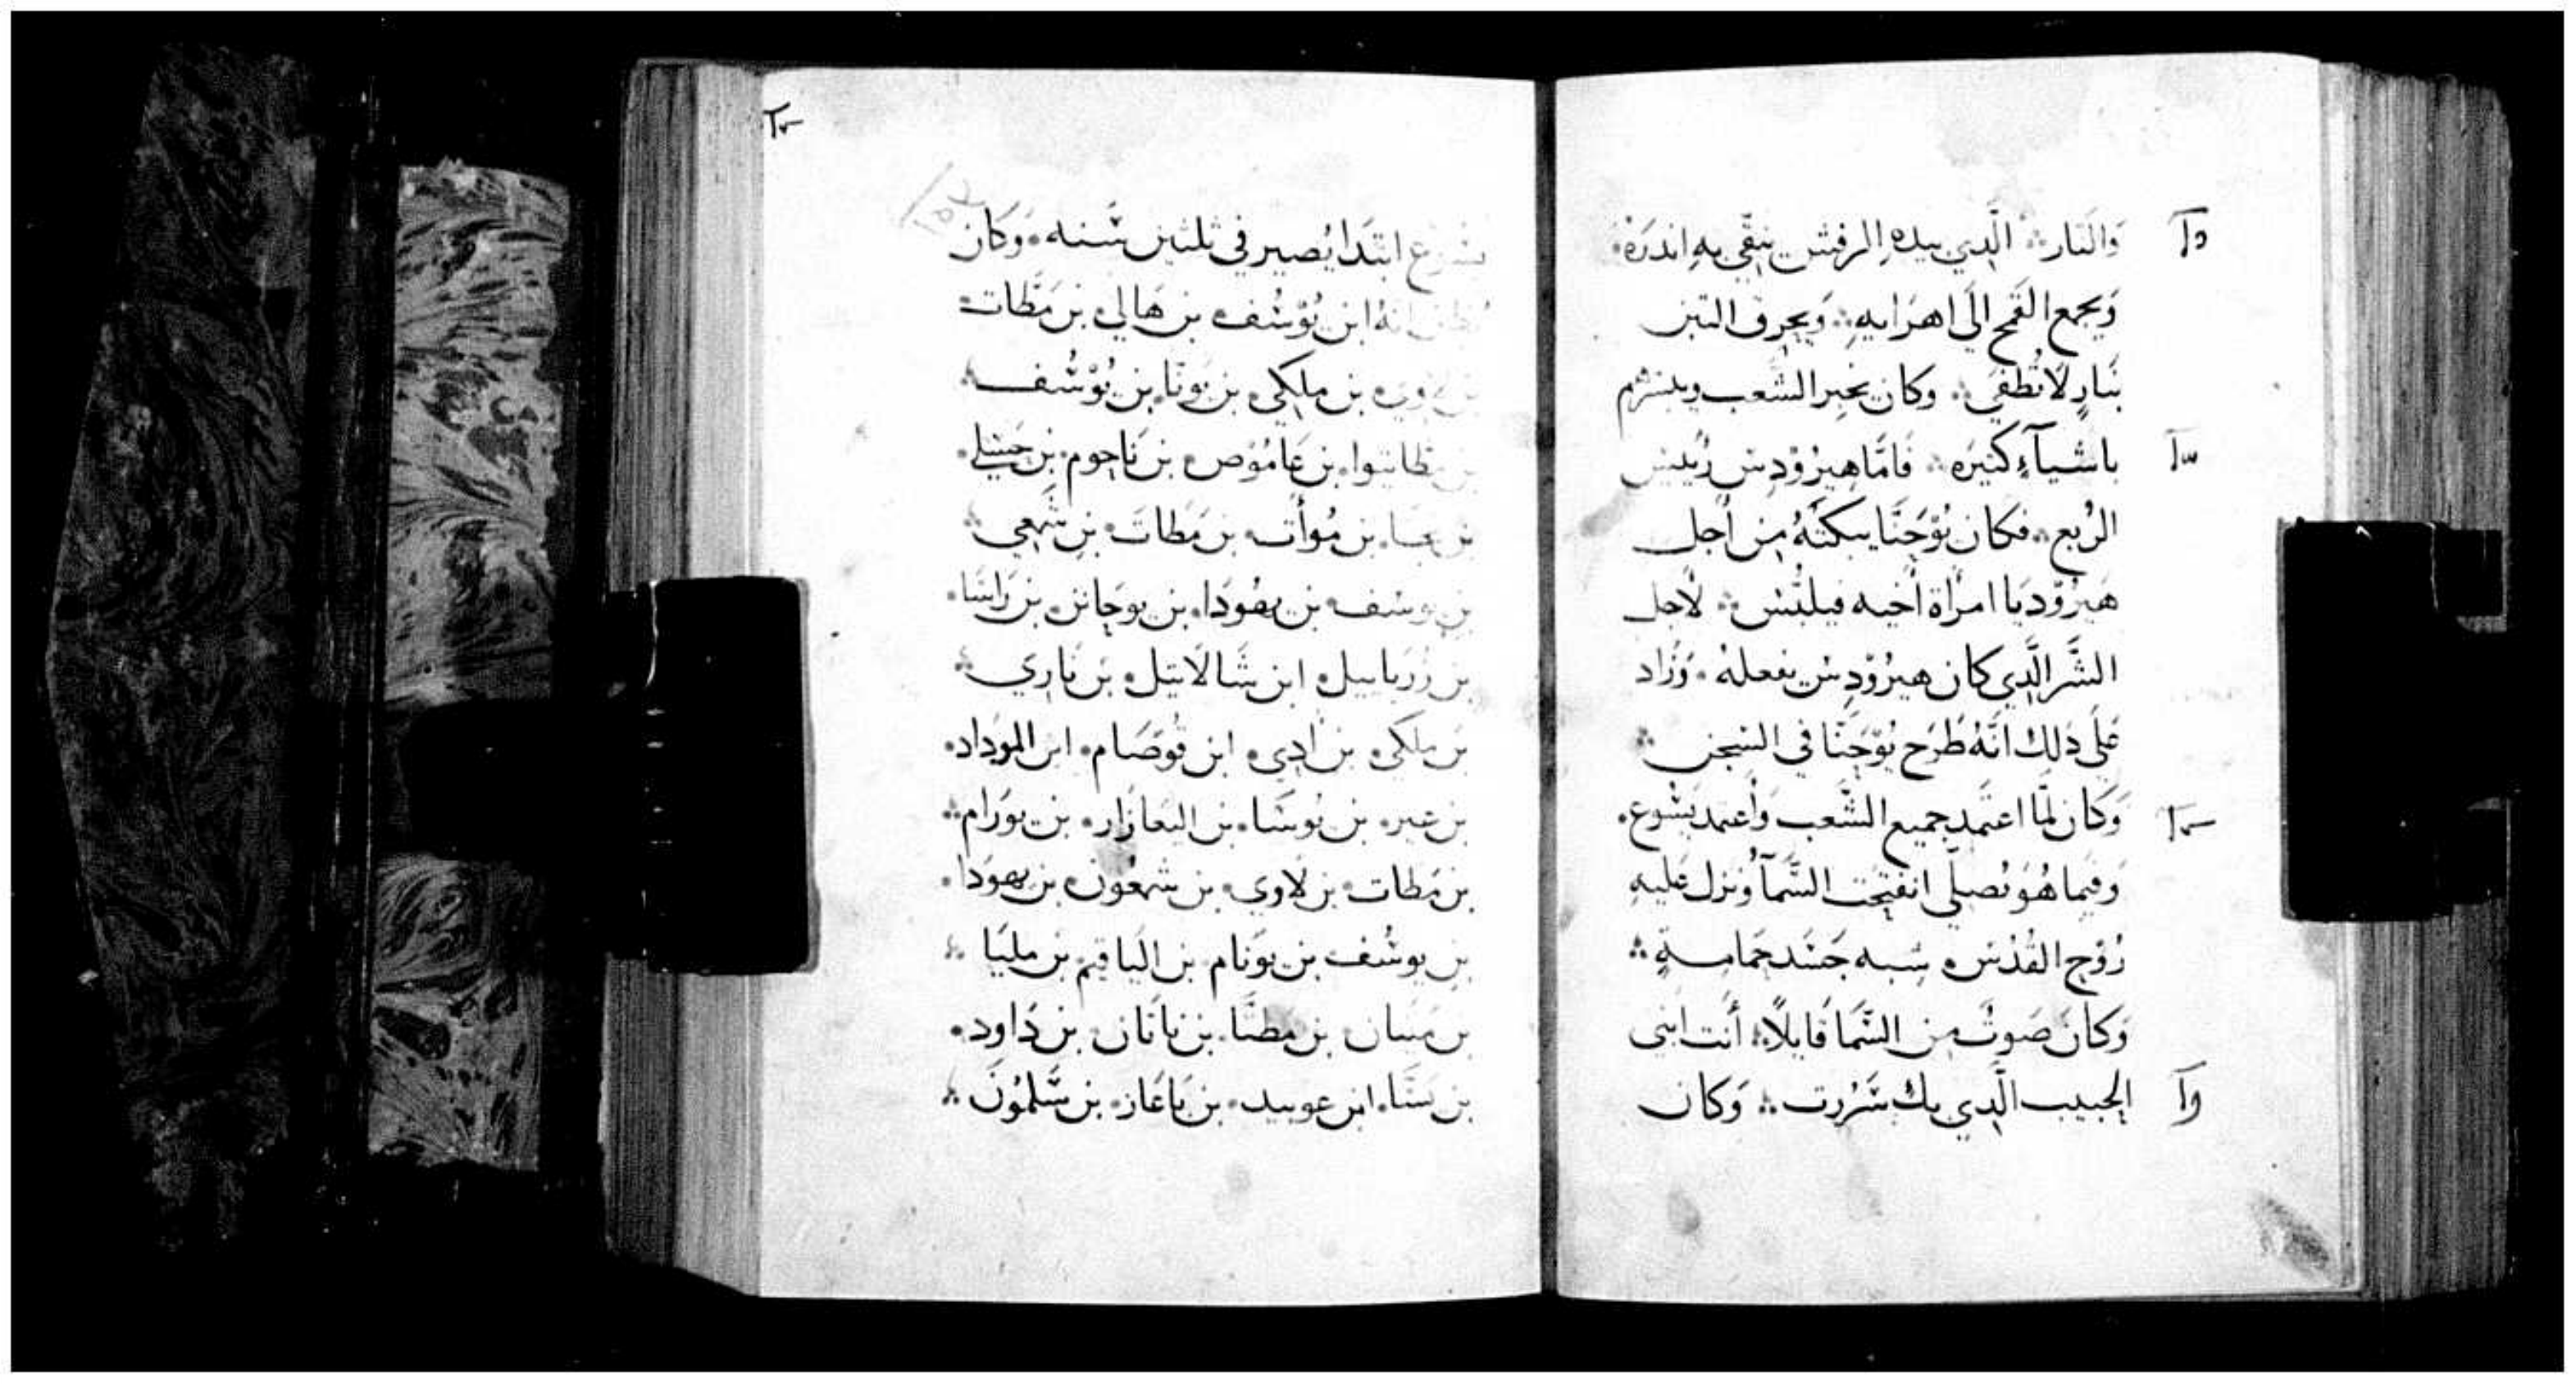 وَالنَار ۞ الَّدِي بيدهِ الرفش ينقّي بهِ اندرَهُ
وَيجمع القَمح الَى اهرَايهِ ۞ وَيحرِق التبن
بنَارٍ لَا تُطفَى ۞ وكان يخبر الشعب ويبشرهم
باشيآءٍ كثيره ۞ فَامَّا هِيرُوْدِس رَييس
الرُبع ۞ فكان يُوْحَنَّا يبكتهُ مِن أَجل
هَيرُوْديَا امرأة أخيه فيلبُّس ۞ لأجل
الشَّر الَّدِي كان هيرُوْدِس يفعلهُ ۞ وَزَاد
عَلَى دَلك انَّهُ طَرَح يُوْحَنَّا في السِجن ۞
وَكَان لمَّا اعتَمد جميع الشَّعب وَأعتمد يَشُوع ۞
وَفيمَا هُوَ يُصلّي انفتحَت السَّمآءُ وَنزل عَليهِ
رُوْح القُدُس ۞ شِبه جَسَد حمَامةٍ ۞
وَكَان صَوتٌ مِن السَّمَا قَايلاً ۞ أَنت ابني
الحِبيب الَّدِي بك سَرُرت ۞ وَكان
يشوع ابتَدَا يُصير في ثلثين سَنه ۞ وَكَان
يُظن انهُ ابن يُوْسُف ۞ بن هَالي ۞ بن مَطَات ۞
بن ملكي ۞ بن يونَا ۞ بن يُوْسُف ۞
بن عَامُوْص ۞ بن نَاحوم ۞ بن حَسلي ۞
بن مُوأَت ۞ بن مَطَات ۞ بن شَمعِي ۞
بن يوسف ۞ بن يهُودَا ۞ بن يوحَانن ۞ بن رَاسَا ۞
بن زربابيل ۞ ابن شَالَاتيل ۞ بن نَارِي ۞
بن ملكي ۞ بن أدِي ۞ ابن قُوصَام ۞ ابن الموداد ۞
بن عير ۞ بن يُوسَا ۞ بن اليعَازَار ۞ بن يورَام ۞
بن مَطَات ۞ بن لَاوي ۞ بن شمعُون ۞ بن يهودَا ۞
بن يوسُف ۞ بن يونَام ۞ بن اليَاقيم ۞ بن مليَا ۞
بن مَينَان ۞ بن مَطتَّا ۞ بن نَاتَان ۞ بن دَاود ۞
بن يسَّا ۞ ابن عوبيد ۞ بن بَاعَاز ۞ بن سَلمُونَ ۞